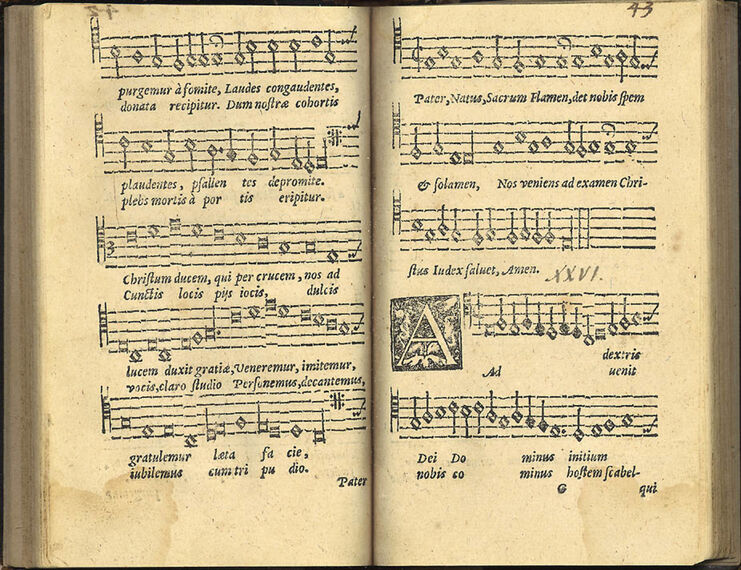 purgemur à fomite, Laudes congaudentes,
donata recipitur. Dum nostræ cohortis
plaudentes, psallen tes depromite.
plebs mortis à por tis eripitur.
Christum ducem, qui per crucem, nos ad
Cunctis locis pijs iocis, dulcis
lucem duxit gratiæ, Veneremur, imitemur,
vocis, claro studio Personemus, decantemus,
gratulemur læta fa cie,
iubilemus cum tri pu dio.
Pater
43
Pater, Natus, Sacrum Flamen, det nobis spem
& solamen, Nos veniens ad examen Chri-
stus Iudex saluet, Amen.
XXVI.
A
dextris
Ad uenit
Dei Do minus initium
nobis co minus hostem scabel-
G qui